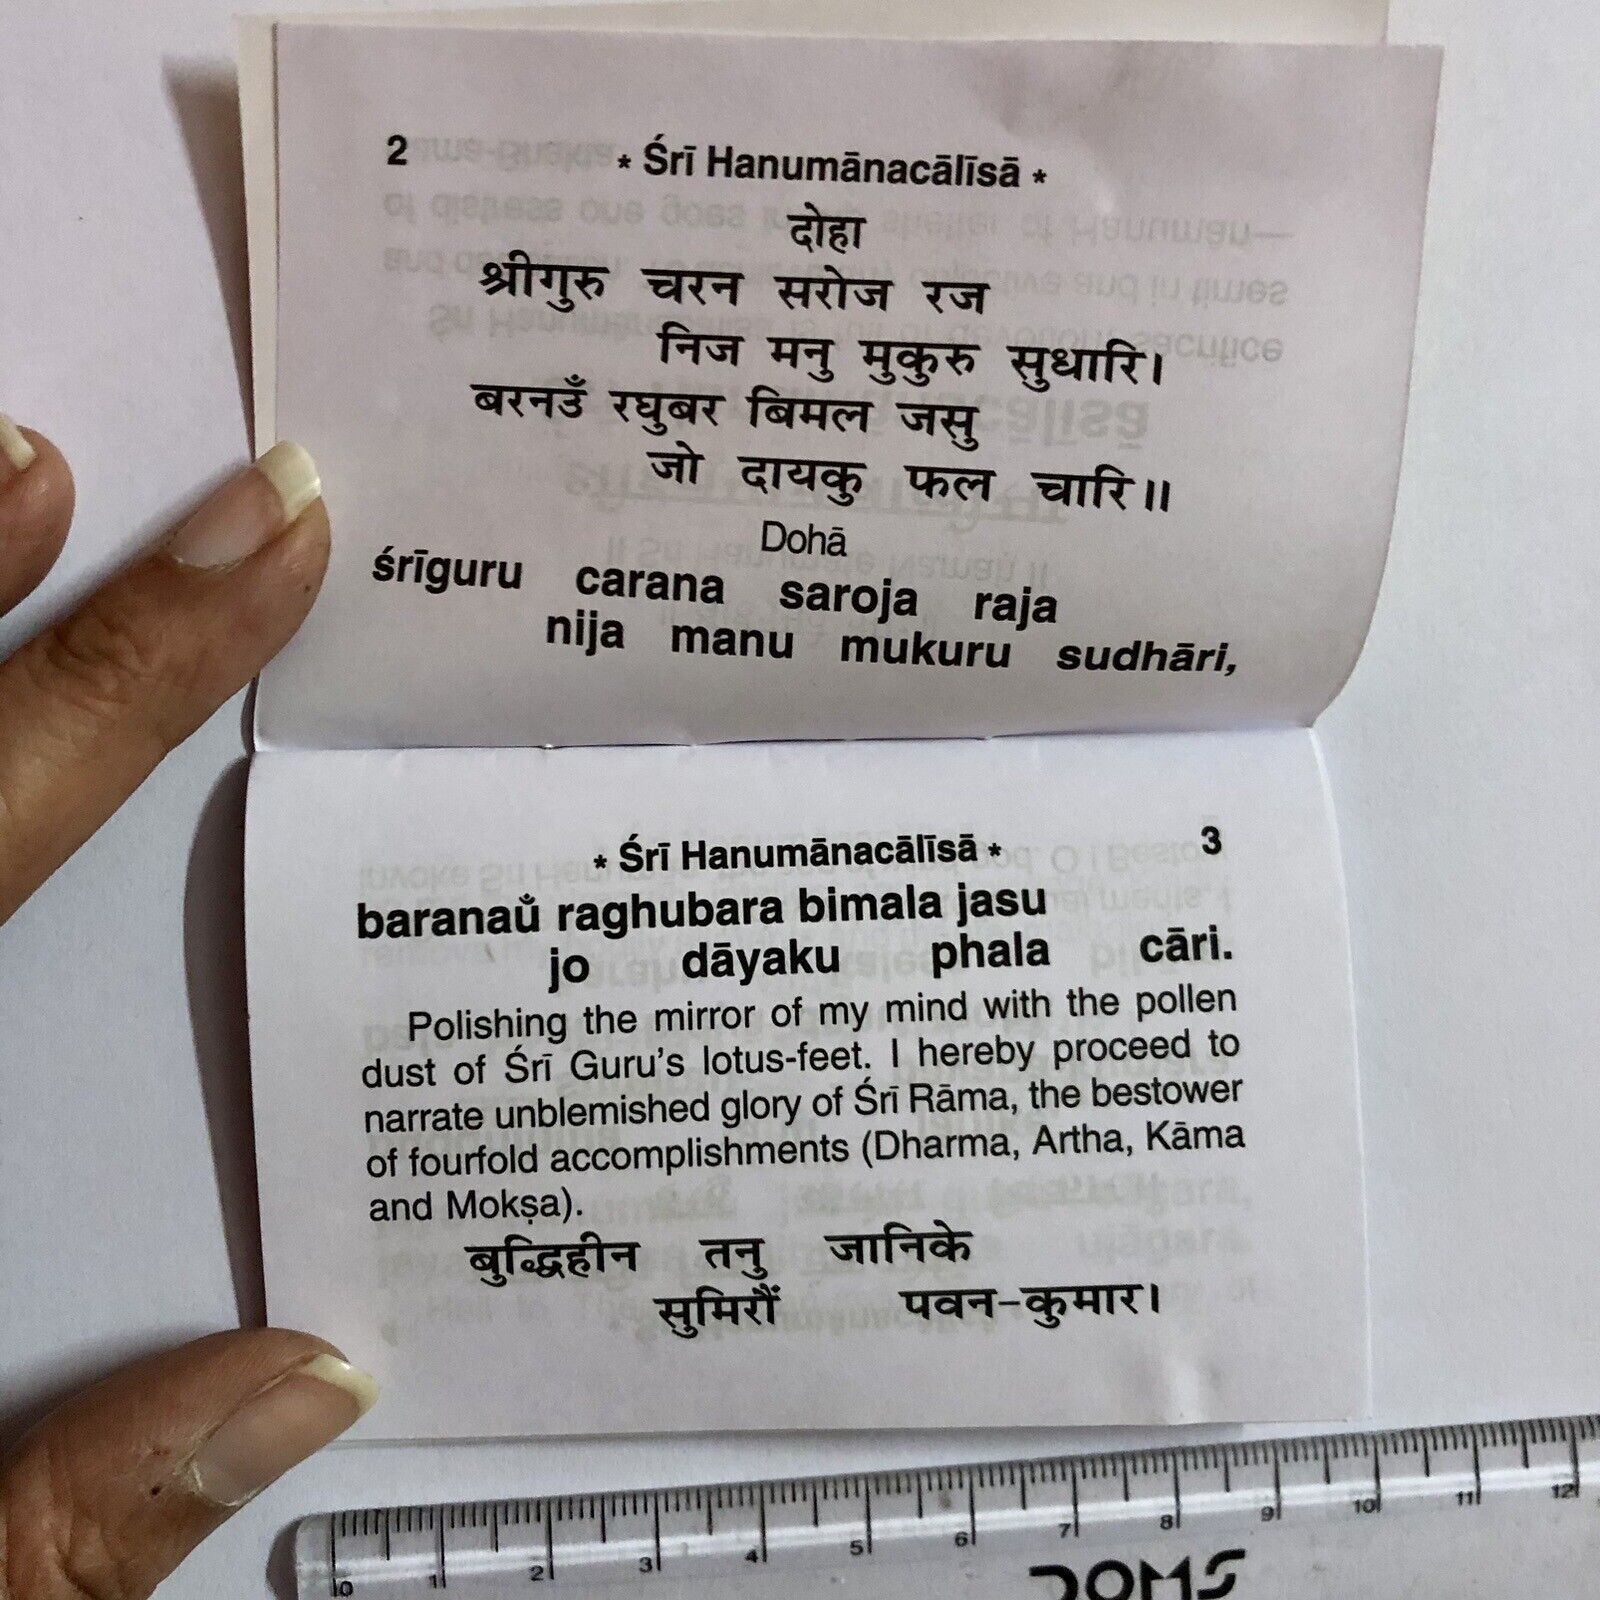 2 * Śrī Hanumānacālīsā *
दोहा
श्रीगुरु चरन सरोज रज
निज मनु मुकुरु सुधारि।
बरनउँ रघुबर बिमल जसु
जो दायकु फल चारि॥
Dohā
śrīguru carana saroja raja
nija manu mukuru sudhāri,
* Śrī Hanumānacālīsā * 3
baranaům̐ raghubara bimala jasu
jo dāyaku phala cāri.
Polishing the mirror of my mind with the pollen
dust of Śrī Guru's lotus-feet. I hereby proceed to
narrate unblemished glory of Śrī Rāma, the bestower
of fourfold accomplishments (Dharma, Artha, Kāma
and Mokṣa).
बुद्धिहीन तनु जानिके
सुमिरौं पवन-कुमार।
0 1 2 3 4 5 6 7 8 9 10 11 12